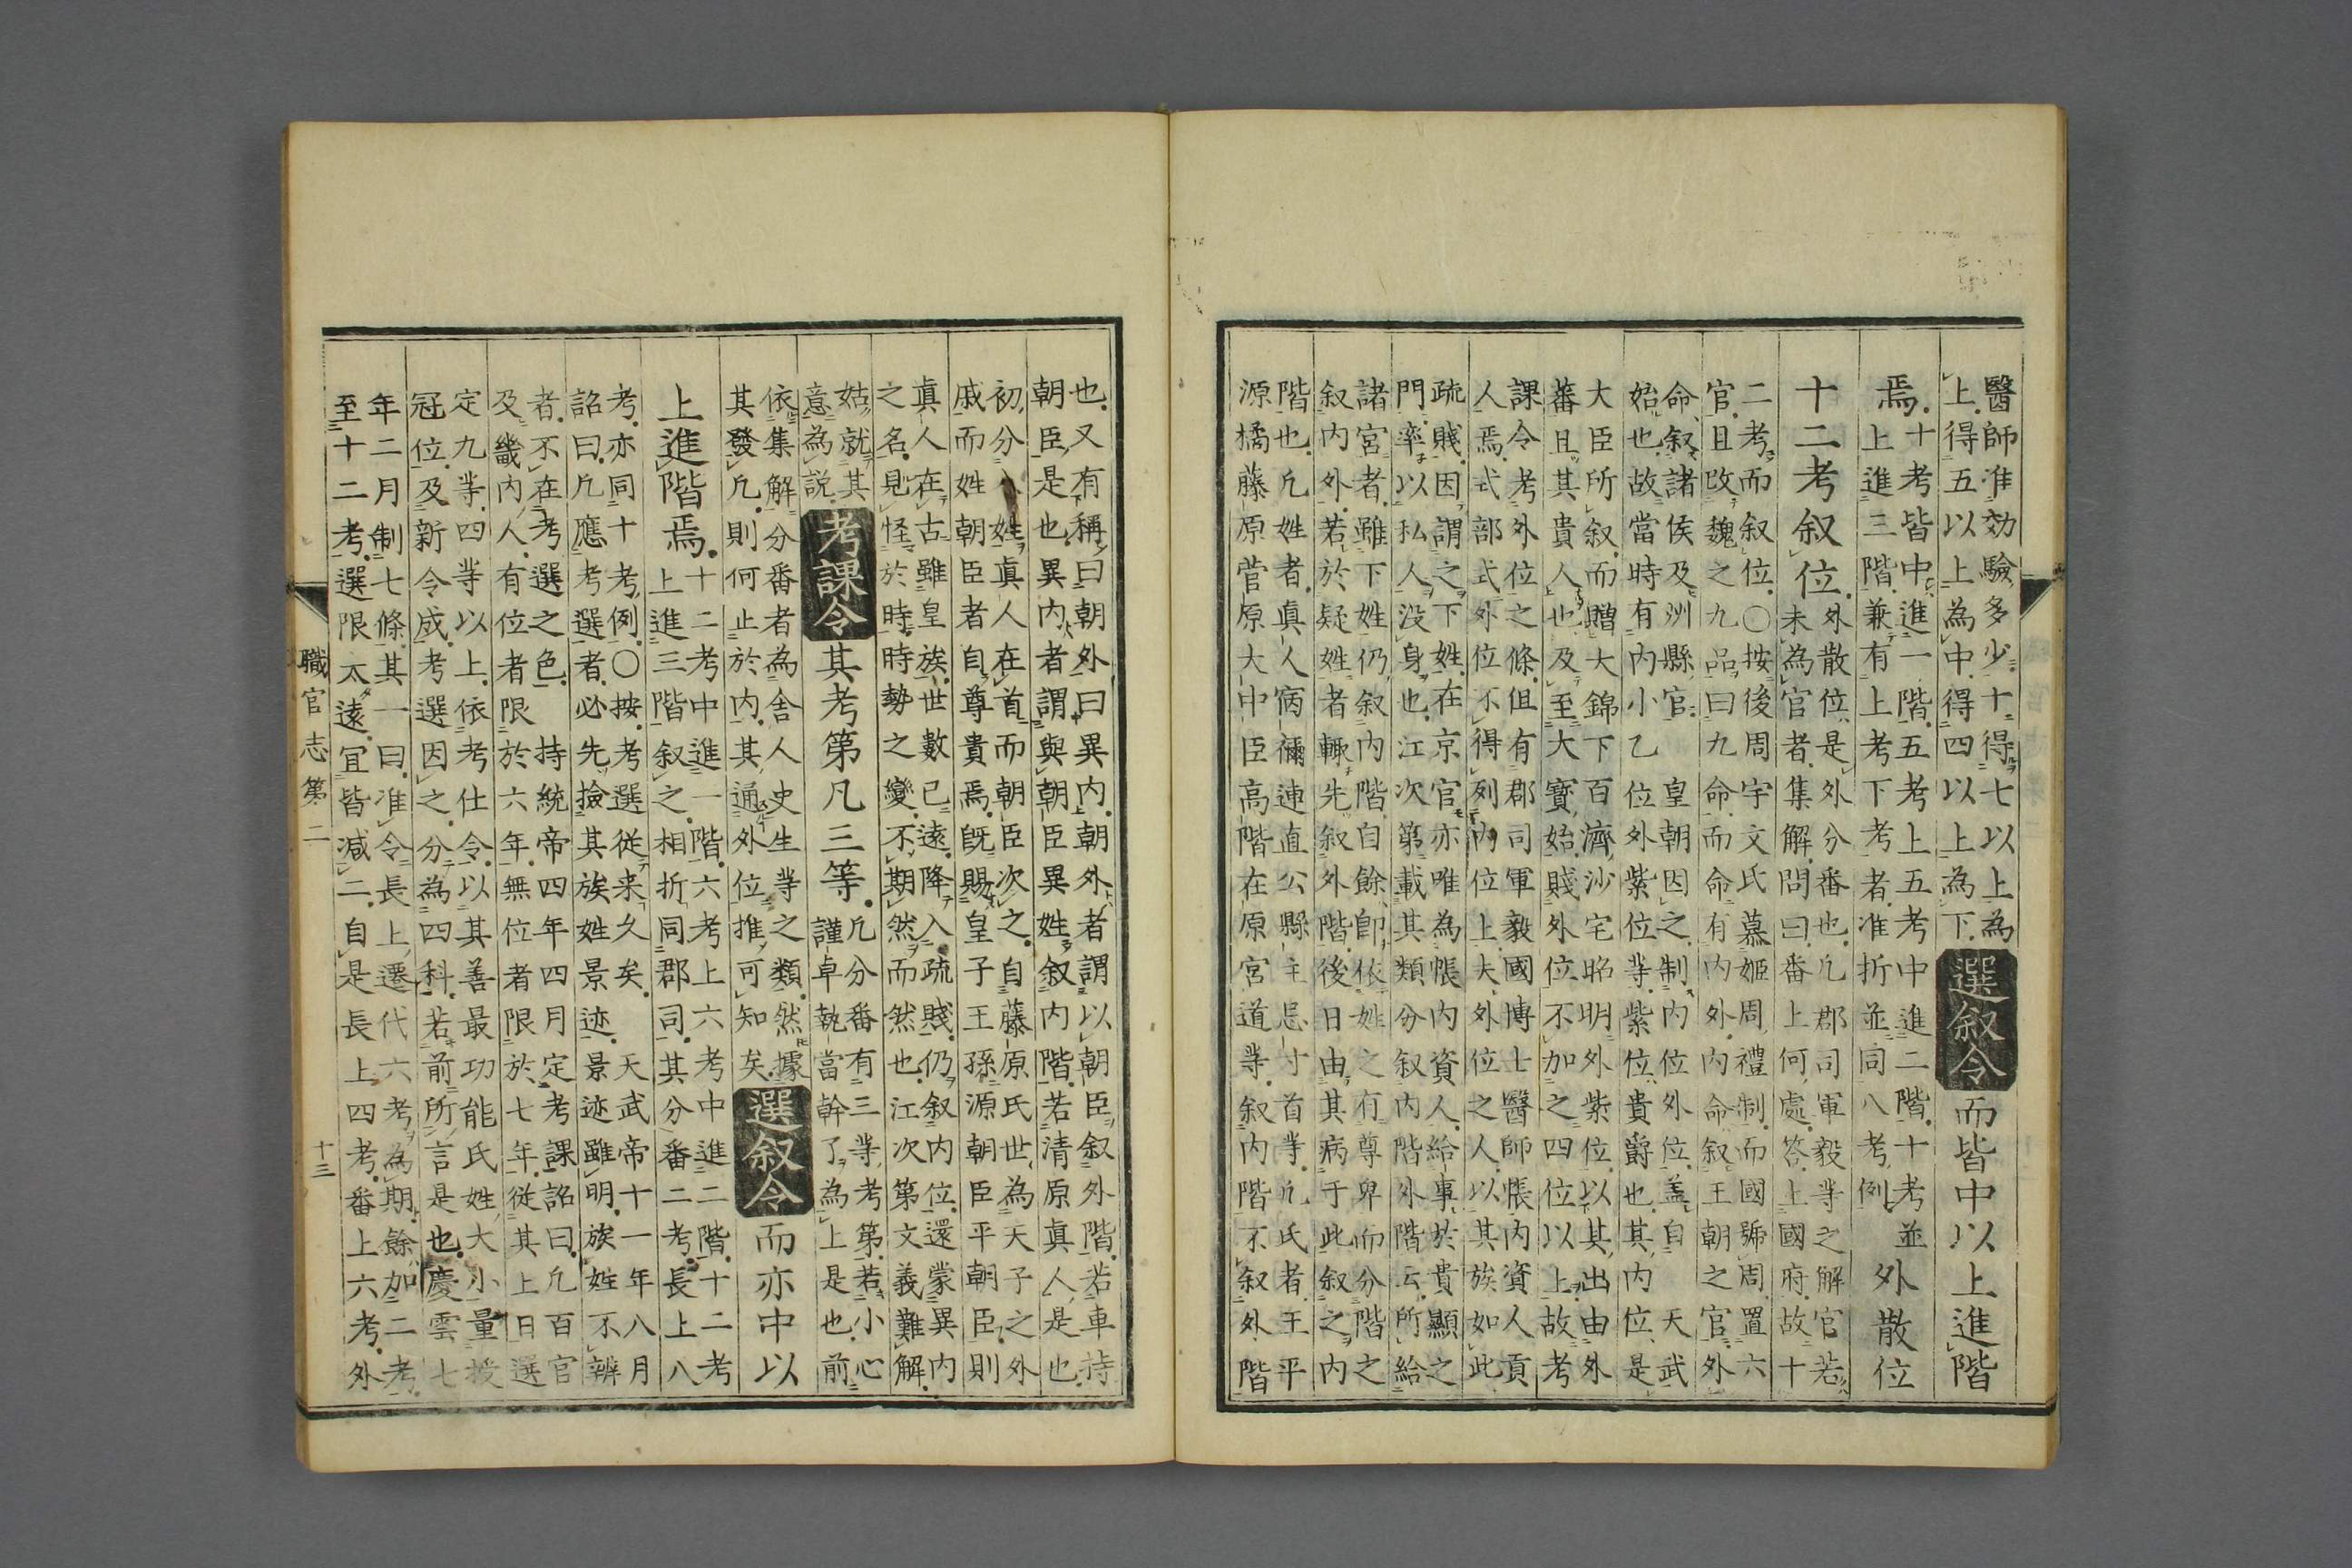 醫師准効驗多少十得七以上爲
上得五以上爲中得四以上爲下
選叙令
而皆中以上進階
焉
十考皆中進一階五考上五考中進二階十考並
上進三階兼有上考下考者准折並同八考例
外散位
十二考叙位
外散位是外分番也凡郡司軍毅等之解官若
未爲官者集解問曰番上何處答上國府故十
二考而叙位〇按後周宇文氏慕姬周禮制而國號周置六
官且改魏之九品曰九命而命有內外內命叙王朝之官外
命叙諸侯及洲縣官皇朝因之制內位外位蓋自天武
始也故當時有內小乙位外紫位等紫位貴爵也其內位是
大臣所叙而贈大錦下百濟沙宅昭明外紫位以其出由外
蕃且其貴人也及至大寶始賤外位不加之四位以上故考
課令考外位之條但有郡司軍毅國博士醫師帳內資人貢
人焉式部式外位不得列內位上夫外位之人以其族如此
疏賤因謂之下姓在京官亦唯爲帳內資人給事於貴顯之
門率以私人没身也江次第載其類分叙內階外階云所給
諸宮者雖下姓仍叙內階自餘卽依姓之有尊卑而分階之
叙內外若於疑姓者輙先叙外階後日由其病于此叙之內
階也凡姓者眞人病禰連直公縣主忌寸首等凡氏者王平
源橘藤原菅原大中臣高階在原宮道等叙內階不叙外階
也又有稱曰朝外曰異內朝外者謂以朝臣叙外階若車持
朝臣是也異內者謂與朝臣異姓叙內階若清原眞人是也
初分姓眞人在首而朝臣次之自藤原氏世爲天子之外
戚而姓朝臣者自尊貴焉旣賜皇子王孫源朝臣平朝臣則
眞人在古雖皇族世數已遠降入疏賤仍叙內位還蒙異內
之名見怪於時時勢之變不期然而然也江次第文義難解
姑就其
意爲說
考課令
其考第凡三等
凡分番有三等考第若小心
謹卓執當幹了爲上是也前
依集解分番者爲舍人史生等之類然據
其發凡則何止於內其通外位推可知矣
選叙令
而亦中以
上進階焉
十二考中進一階六考上六考中進二階十二考
上進三階叙之相折同郡司其分番二考長上八
考亦同十考例〇按考選從来久矣天武帝十一年八月
詔曰凡應考選者必先撿其族姓景迹景迹雖明族姓不辨
者不在考選之色持統帝四年四月定考課詔曰凡百官
及畿內人有位者限於六年無位者限於七年從其上日選
定九等四等以上依考仕令以其善最功能氏姓大小量授
冠位及新令成考選因之分爲四科若前所言是也慶雲七
年二月制七條其一曰准令長上遷代六考爲期餘加二考
至十二考選限太遠宜皆減二自是長上四考番上六考外
職官志第二
十三